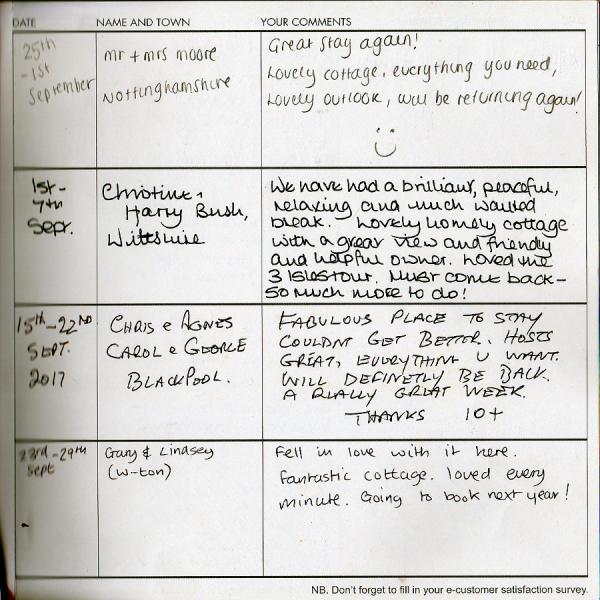 DATE NAME AND TOWN YOUR COMMENTS
25th
-1st
September
mr + mrs moore
Nottinghamshire
Great stay again!
Lovely cottage, everything you need,
Lovely outlook, will be returning again!
1st-
7th
Sept.
Christine +
Harry Bush,
Wiltshire
We have had a brilliant, peaceful,
relaxing and much wanted
break. Lovely homely cottage
with a great view and friendly
and helpful owner. Loved the
3 Isles tour. Must come back -
so much more to do!
15th-22ND
SEPT.
2017
CHRIS & AGNES
CAROL & GEORGE
BLACKPOOL.
FABULOUS PLACE TO STAY
COULDNT GET BETTER. HOSTS
GREAT, EVERYTHING U WANT.
WILL DEFINETLY BE BACK.
A REALLY GREAT WEEK.
THANKS 10+
23rd-29th
Sept
Gary & Lindsey
(W-ton)
Fell in love with it here.
Fantastic cottage. loved every
minute. Going to book next year!
NB. Don't forget to fill in your e-customer satisfaction survey.